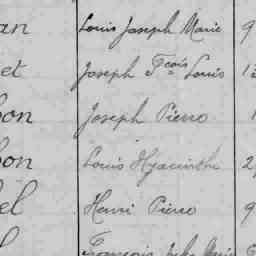 an Louis Joseph Marie 9
et Joseph Fçois Louis 1
bon Joseph Pierre 1
bon Louis Hyacinthe 2
el Henri Pierre 9
François Marie